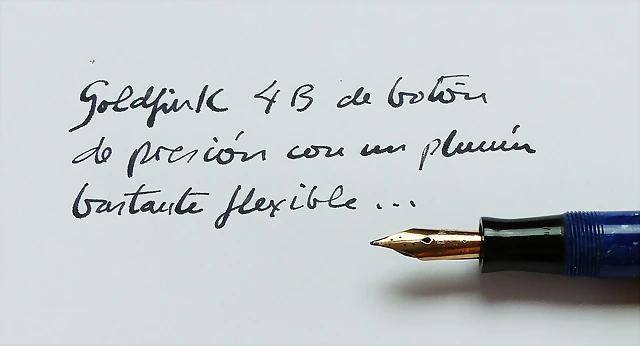 Goldfink 4B de botón
de presión con un plumín
bastante flexible...